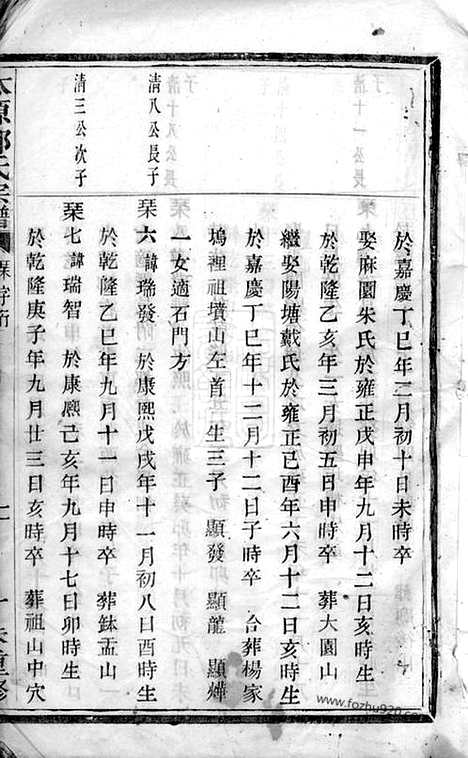 於嘉慶丁巳年二月初十日未時卒
娶麻園朱氏於雍正戊申年九月十二日亥時生
於乾隆乙亥年三月初五日申時卒 葬大園山
繼娶陽塘戴氏於雍正己酉年六月十二日亥時生
於嘉慶丁巳年十二月十二日子時卒 合葬楊家
塢裡祖墳山左首 生三子 顯發 顯龍 顯燁
一女適石門方
清八公長子
琹六諱瑞發 於康熙戊戌年十一月初八日酉時生
於乾隆乙巳年九月十一日申時卒 葬鉢盂山
清三公次子
琹七諱瑞智 於康熙己亥年九月十七日卯時生
於乾隆庚子年九月廿三日亥時卒 葬祖山中穴
太原郭氏宗譜
www.fozhu920.com